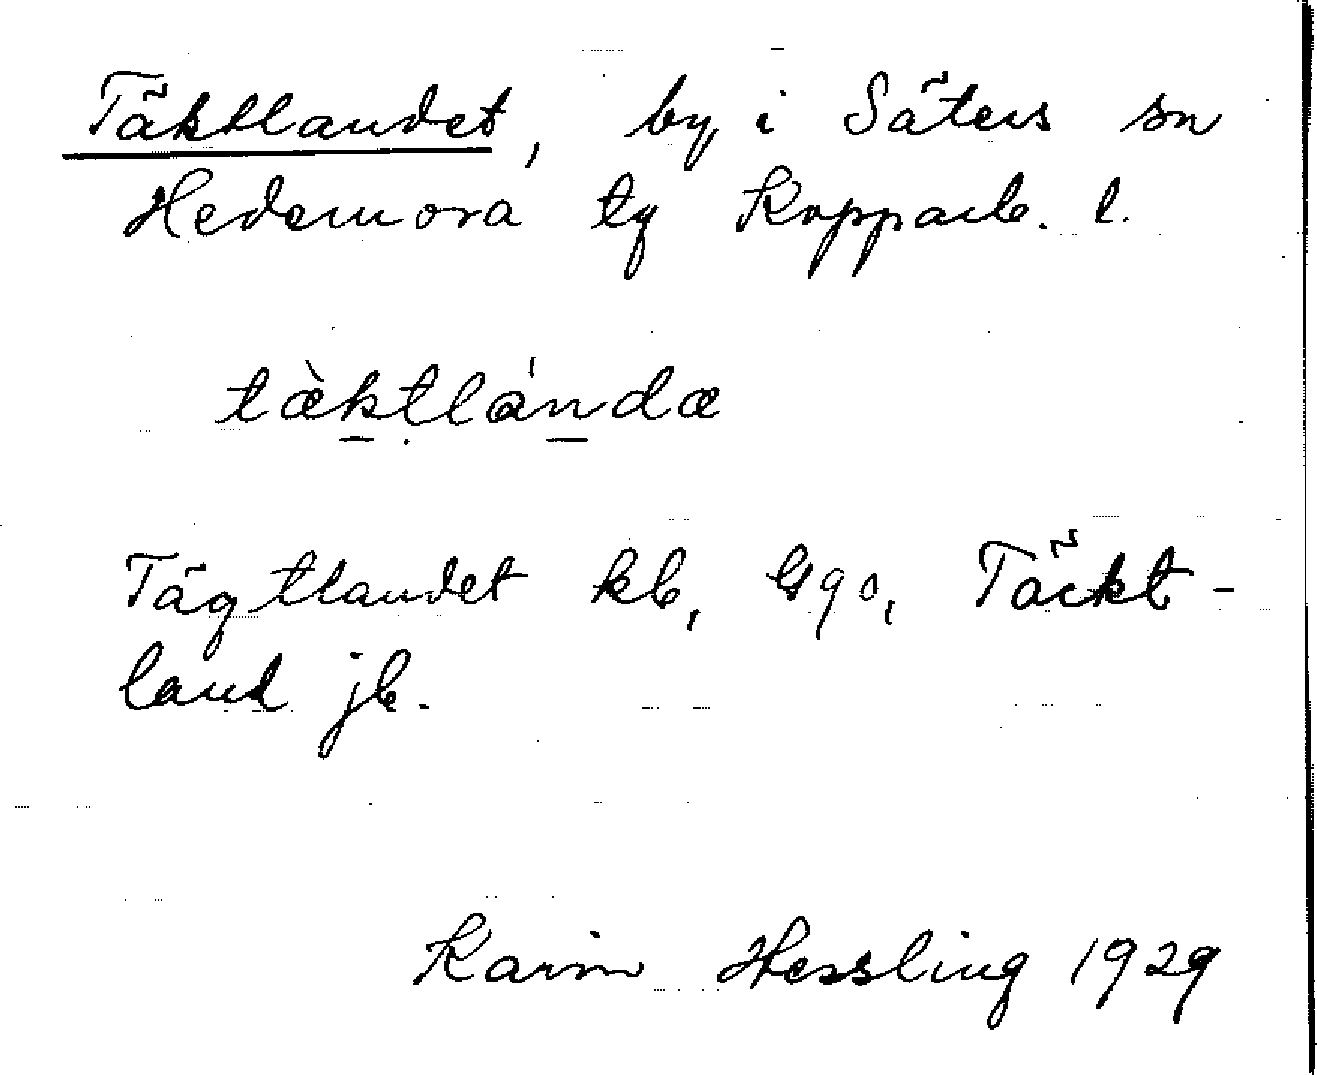 Täktlandet, by i Säters sn
Hedemora tg Kopparb. l.
tæ̀ktlándæ
Tägtlandet kb, Täckt-
land jb.
Karin Hessling 1929